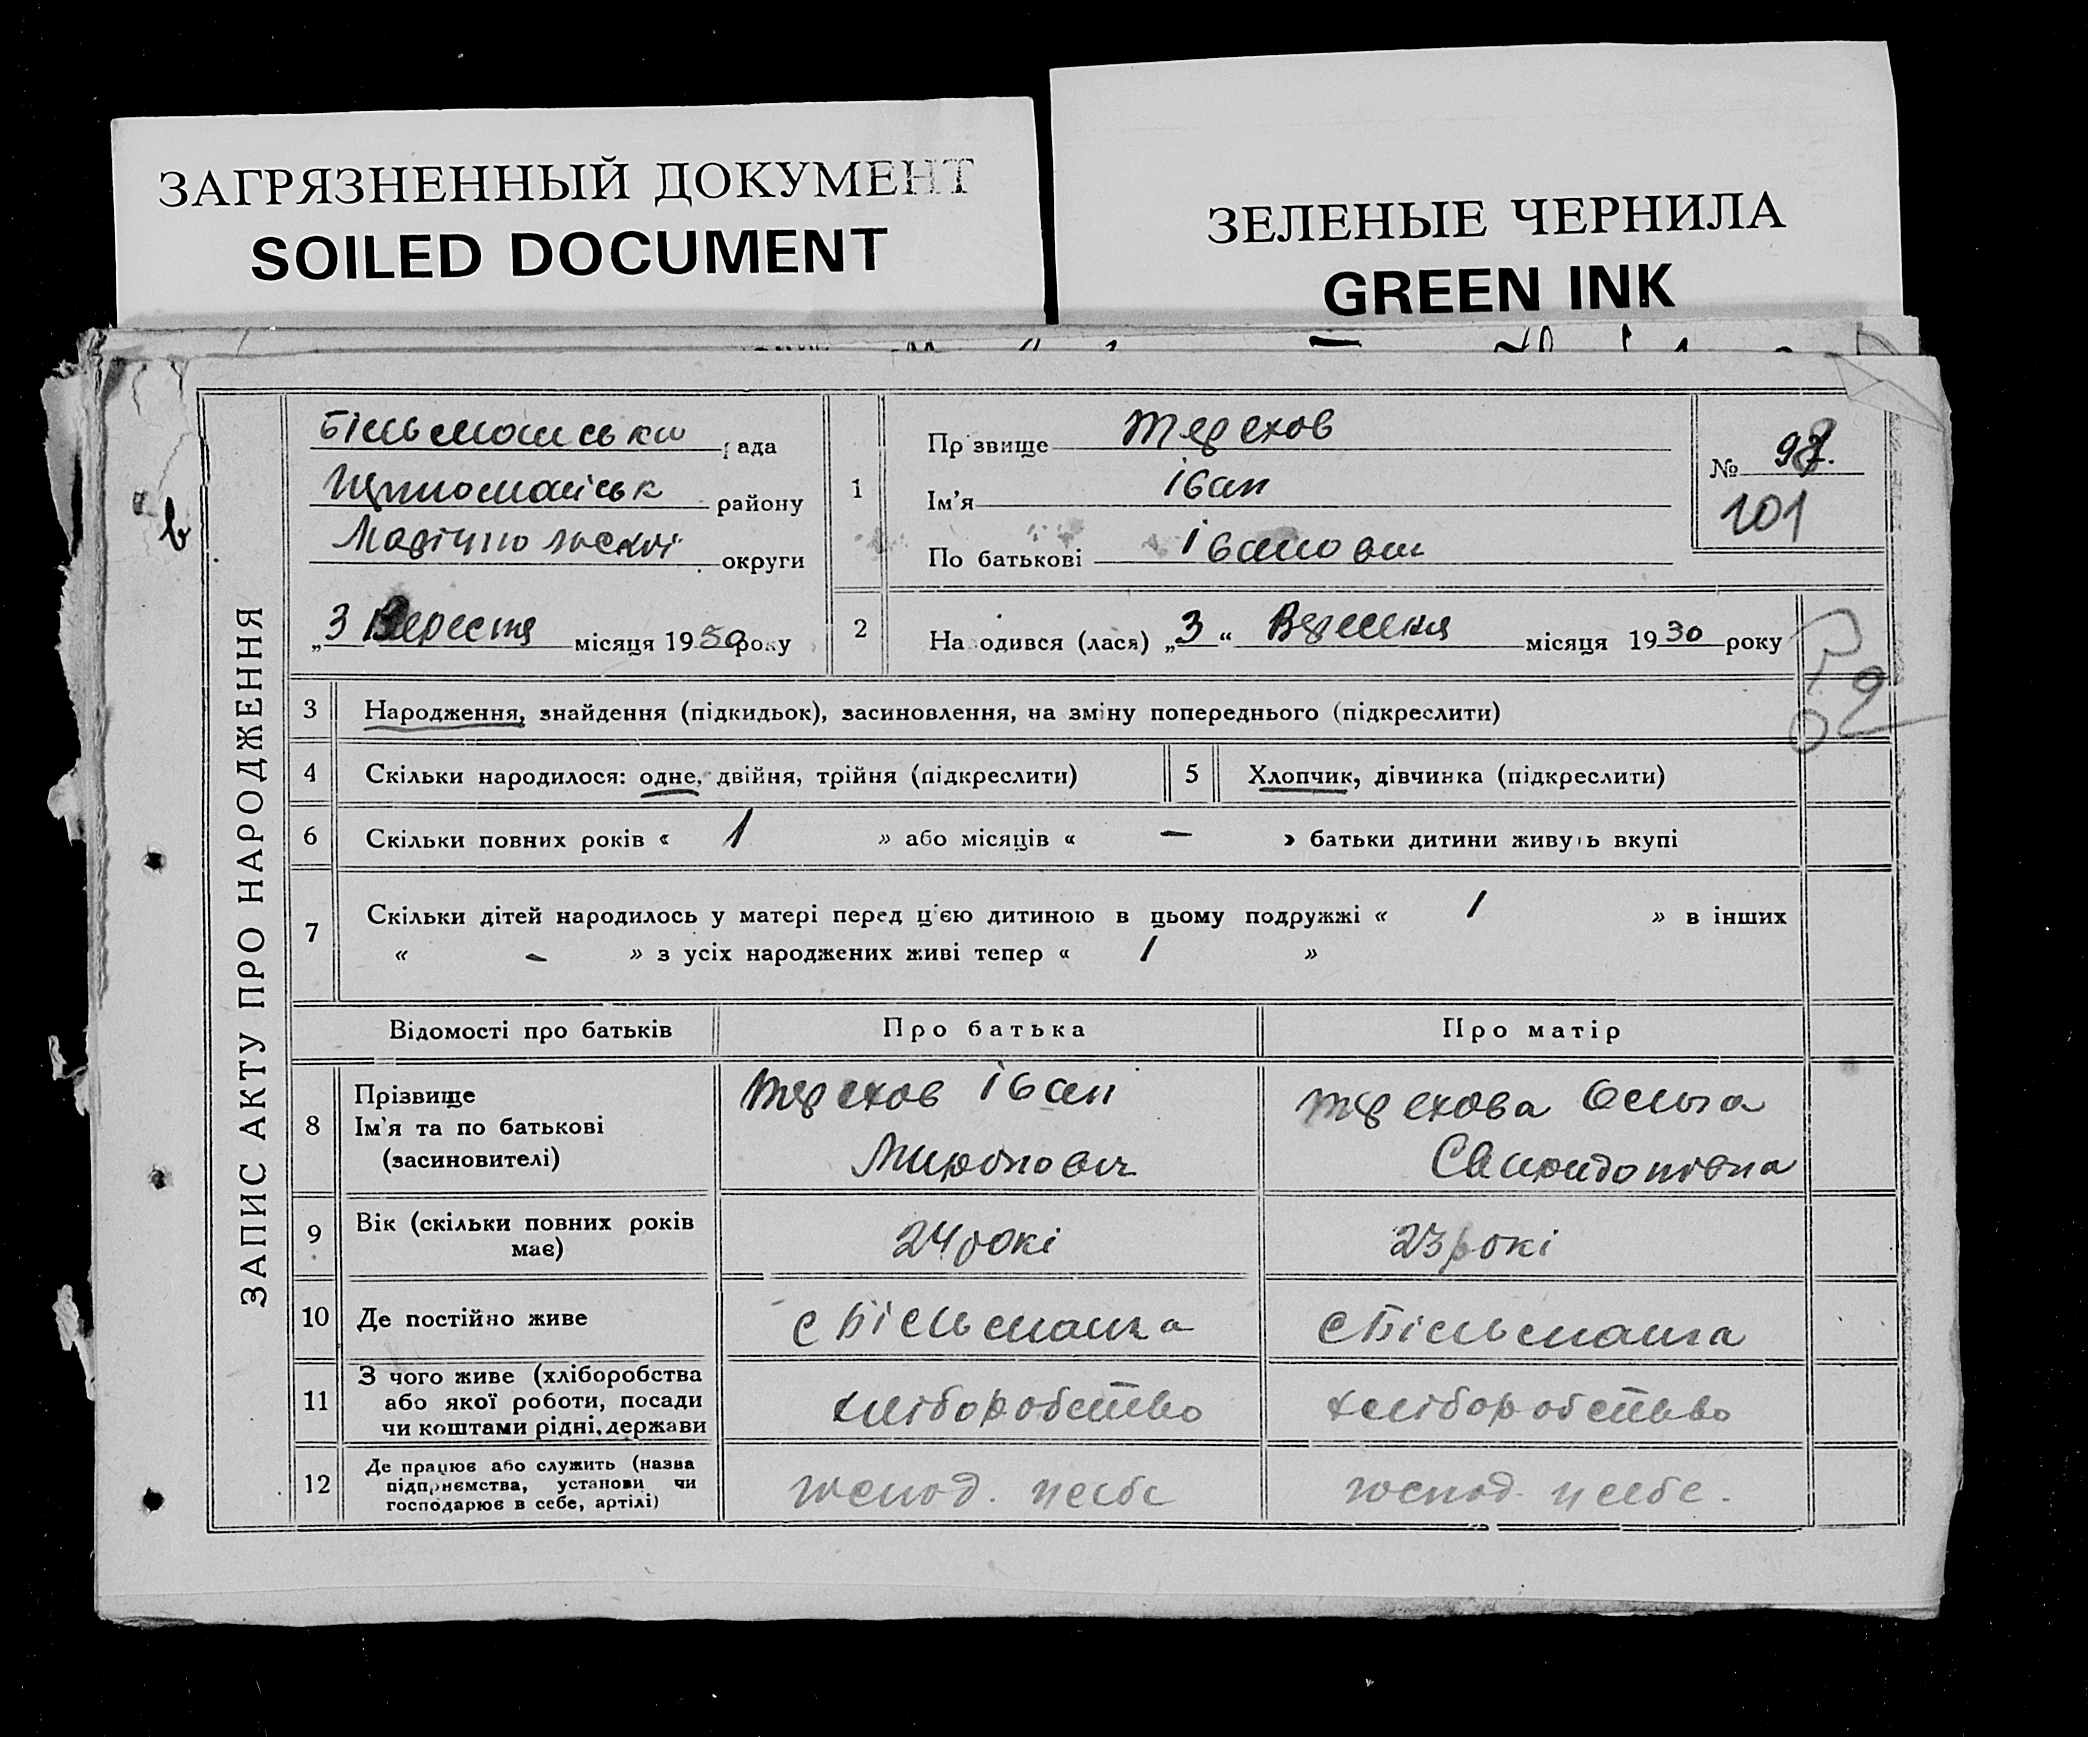 ЗАГРЯЗНЕННЫЙ ДОКУМЕНТ
SOILED DOCUMENT
ЗЕЛЕНЫЕ ЧЕРНИЛА
GREEN INK
ЗАПИС АКТУ ПРО НАРОДЖЕННЯ
Більманська рада
району
Маріупольскої округи
„3 Вересня місяця 1930 року
1
Прізвище Терехов
Ім’я Іван
По батькові Іванович
№ 97.
101
2
Народився (лася) „3“ Вересня місяця 1930 року
3 Народження, знайдення (підкидьок), засиновлення, на зміну попереднього (підкреслити)
4 Скільки народилося: одне, двійня, трійня (підкреслити)
5 Хлопчик, дівчинка (підкреслити)
6 Скільки повних років « 1 » або місяців « — » батьки дитини живуть вкупі
7 Скільки дітей народилось у матері перед ц'єю дитиною в цьому подружжі « 1 » в інших
« - » з усіх народжених живі тепер « 1 »
Відомості про батьків Про батька Про матір
8
Прізвище
Ім’я та по батькові
(засиновителі)
Терехов Іван
Миронович
Терехова Ольга
Свиридонівна
9
Вік (скільки повних років
має)
24 рокі
23 рокі
10 Де постійно живе
с Більманка
с Більманка
11
З чого живе (хліборобства
або якої роботи, посади
чи коштами рідні, держави
хліборобство
хліборобство
12
Де працює або служить (назва
підприємства, установи чи
господарює в себе, артілі)